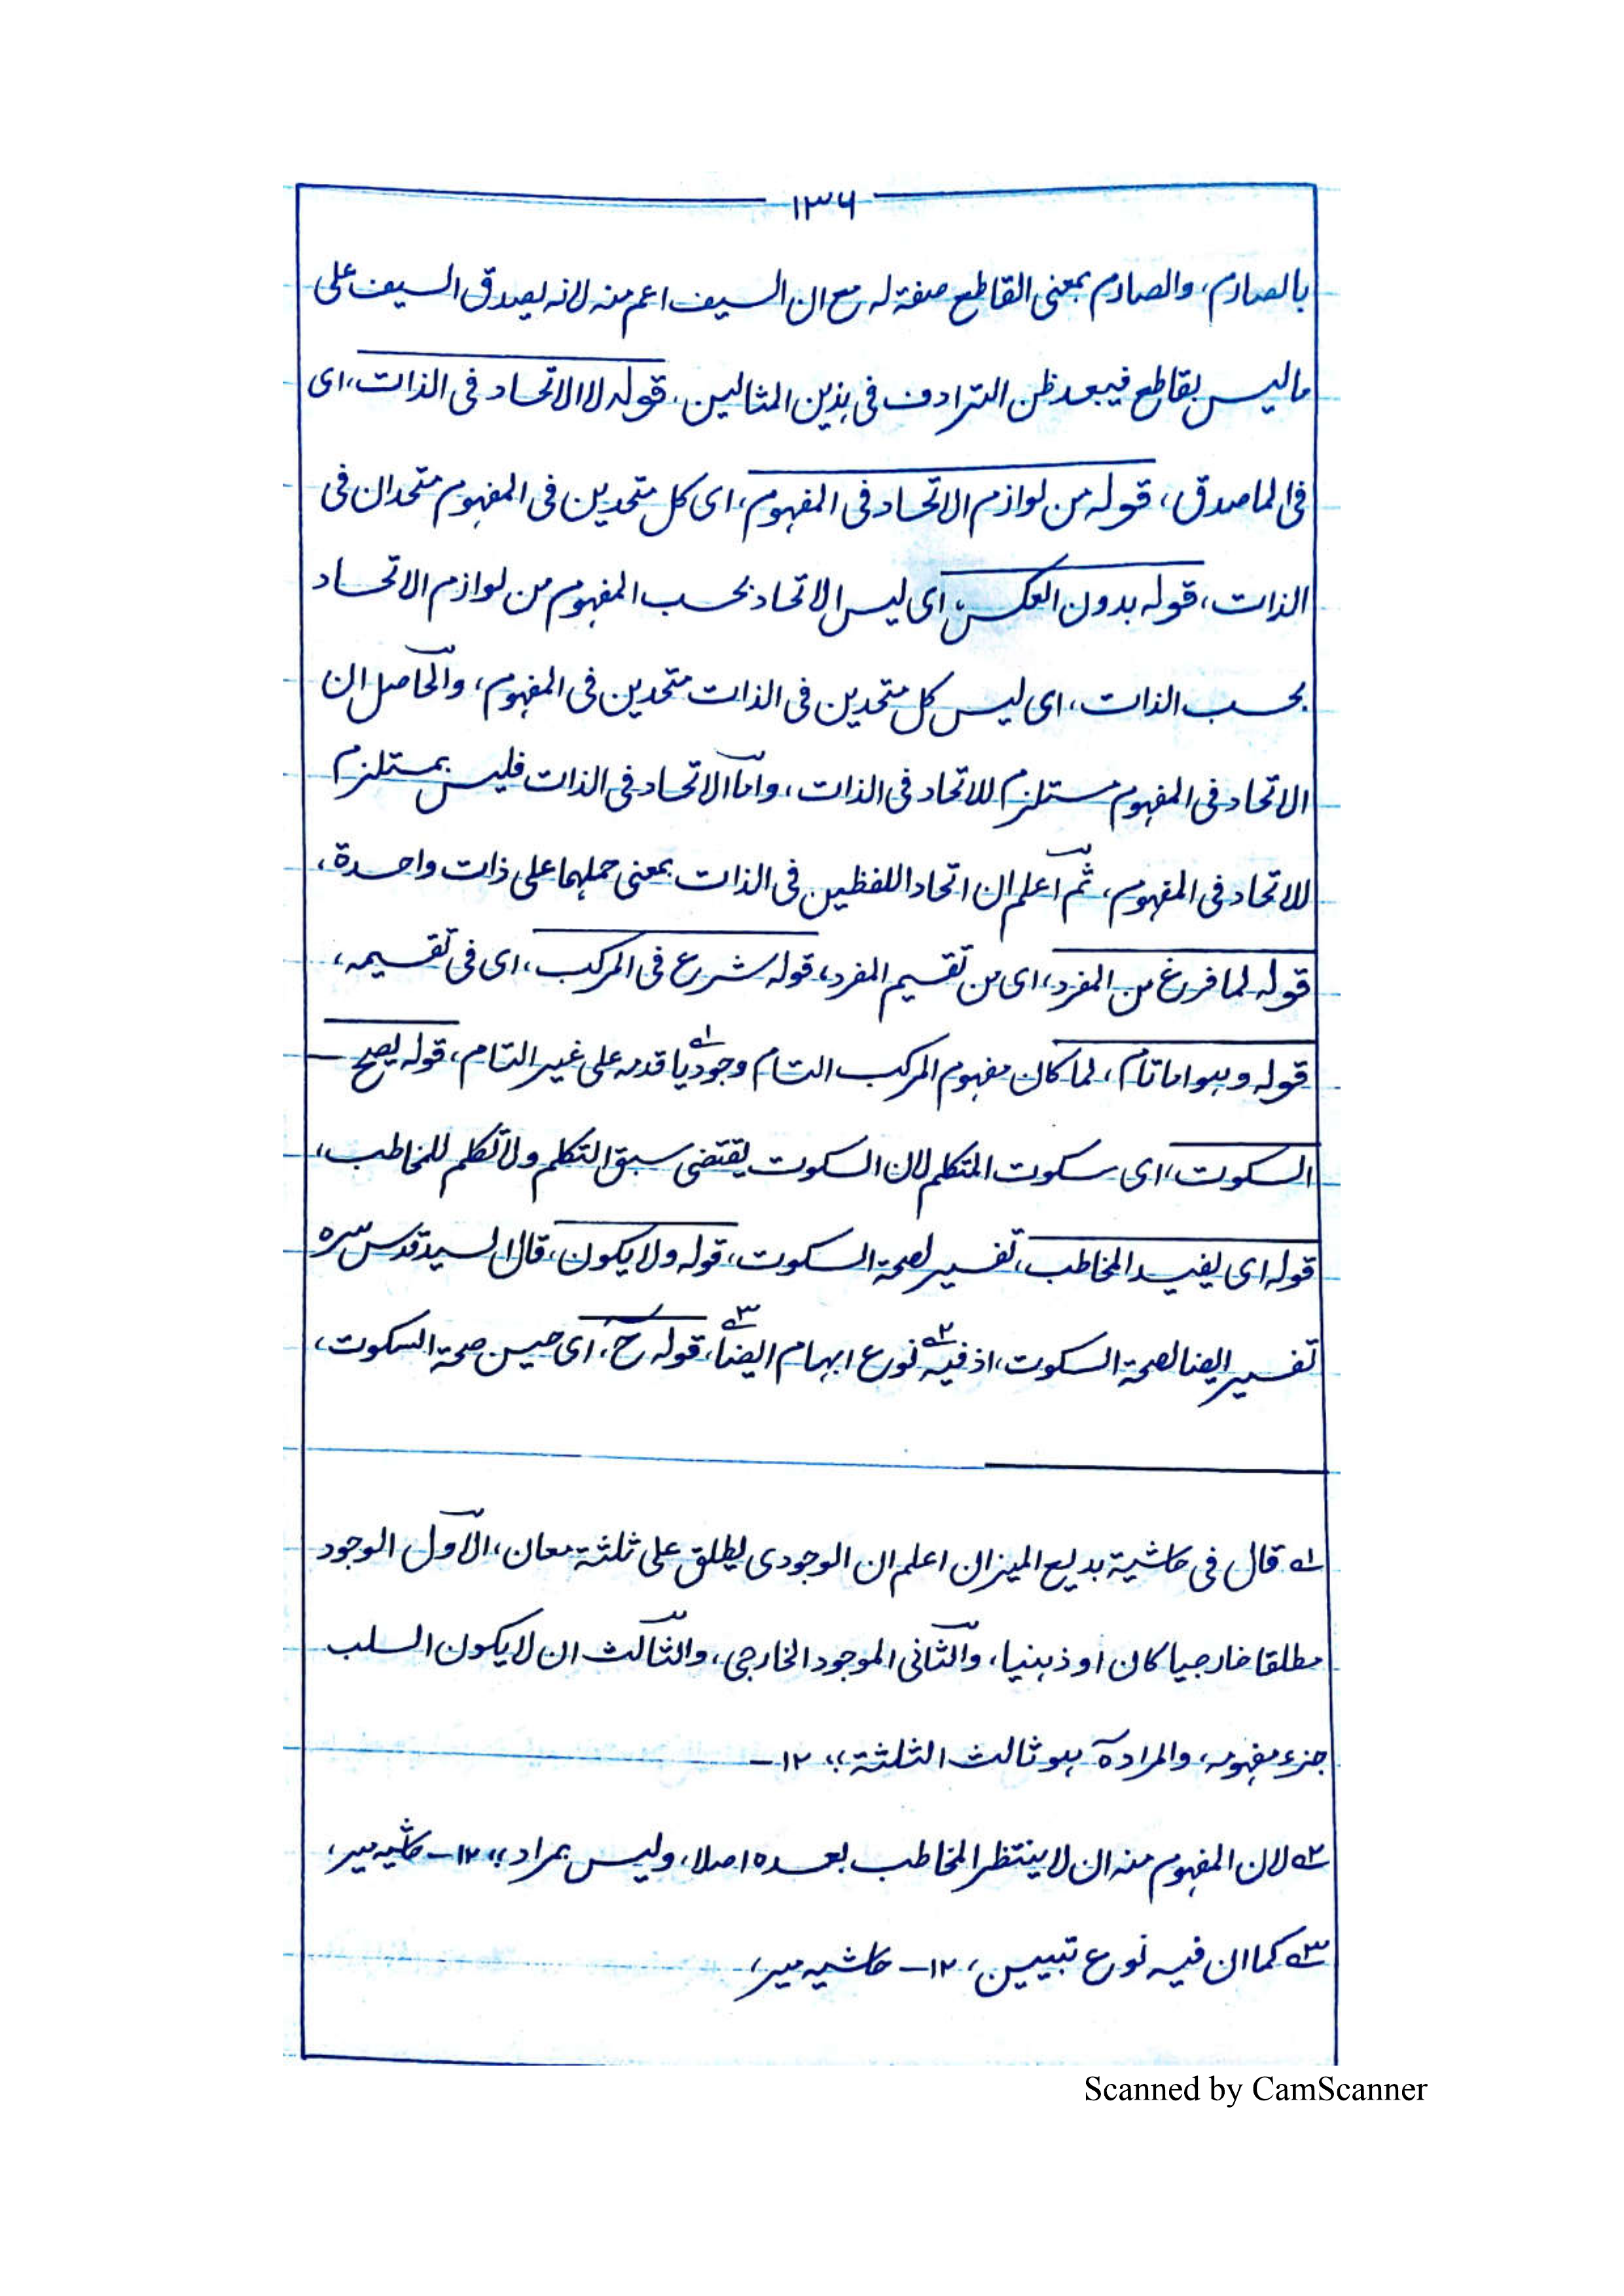 ١٣٦
بالصارم، والصارم بمعنى القاطع صفة له مع ان السيف اعم منه لانه يصدق السيف على
ما ليس بقاطع فيبعد ظن الترادف فى هذين المثالين، قوله لا الاتحاد فى الذات، اى
فى الماصدق، قوله من لوازم الاتحاد فى المفهوم، اى كل متحدين فى المفهوم متحدان فى
الذات، قوله بدون العكس، اى ليس الاتحاد بحسب المفهوم من لوازم الاتحاد
بحسب الذات، اى ليس كل متحدين فى الذات متحدين فى المفهوم، والحاصل ان
الاتحاد فى المفهوم مستلزم للاتحاد فى الذات، واما الاتحاد فى الذات فليس بمستلزم
للاتحاد فى المفهوم، ثم اعلم ان اتحاد اللفظين فى الذات بمعنى حملهما على ذات واحدة،
قوله لما فرغ من المفرد، اى من تقسيم المفرد، قوله شرع فى المركب، اى فى تقسيمه،
قوله وهو اما تام، لما كان مفهوم المركب التام وجوديا ١ قدمه على غير التام، قوله يصح —
السكوت، اى سكوت المتكلم لان السكوت يقتضى سبق التكلم ولا تكلم للمخاطب،
قوله اى يفيد المخاطب، تفسير لصحة السكوت، قوله ولا يكون، قال السيد قدس سره
تفسير ايضا لصحة السكوت، اذ فيه ٢ نوع ابهام ايضا ٣، قوله ح، اى حين صحة السكوت،
١ قال فى حاشية بديع الميزان اعلم ان الوجودى يطلق على ثلثة معان، الاول الوجود
مطلقا خارجيا كان او ذهنيا، والثانى الموجود الخارجى، والثالث ان لا يكون السلب
جزء مفهومه، والمراد هو ثالث الثلثة ،، ١٢ —
٢ لان المفهوم منه ان لا ينتظر المخاطب بعده اصلا، وليس بمراد ،، ١٢ — حاشيه مير،
٣ كما ان فيه نوع تبيين، ١٢ — حاشيه مير،
Scanned by CamScanner